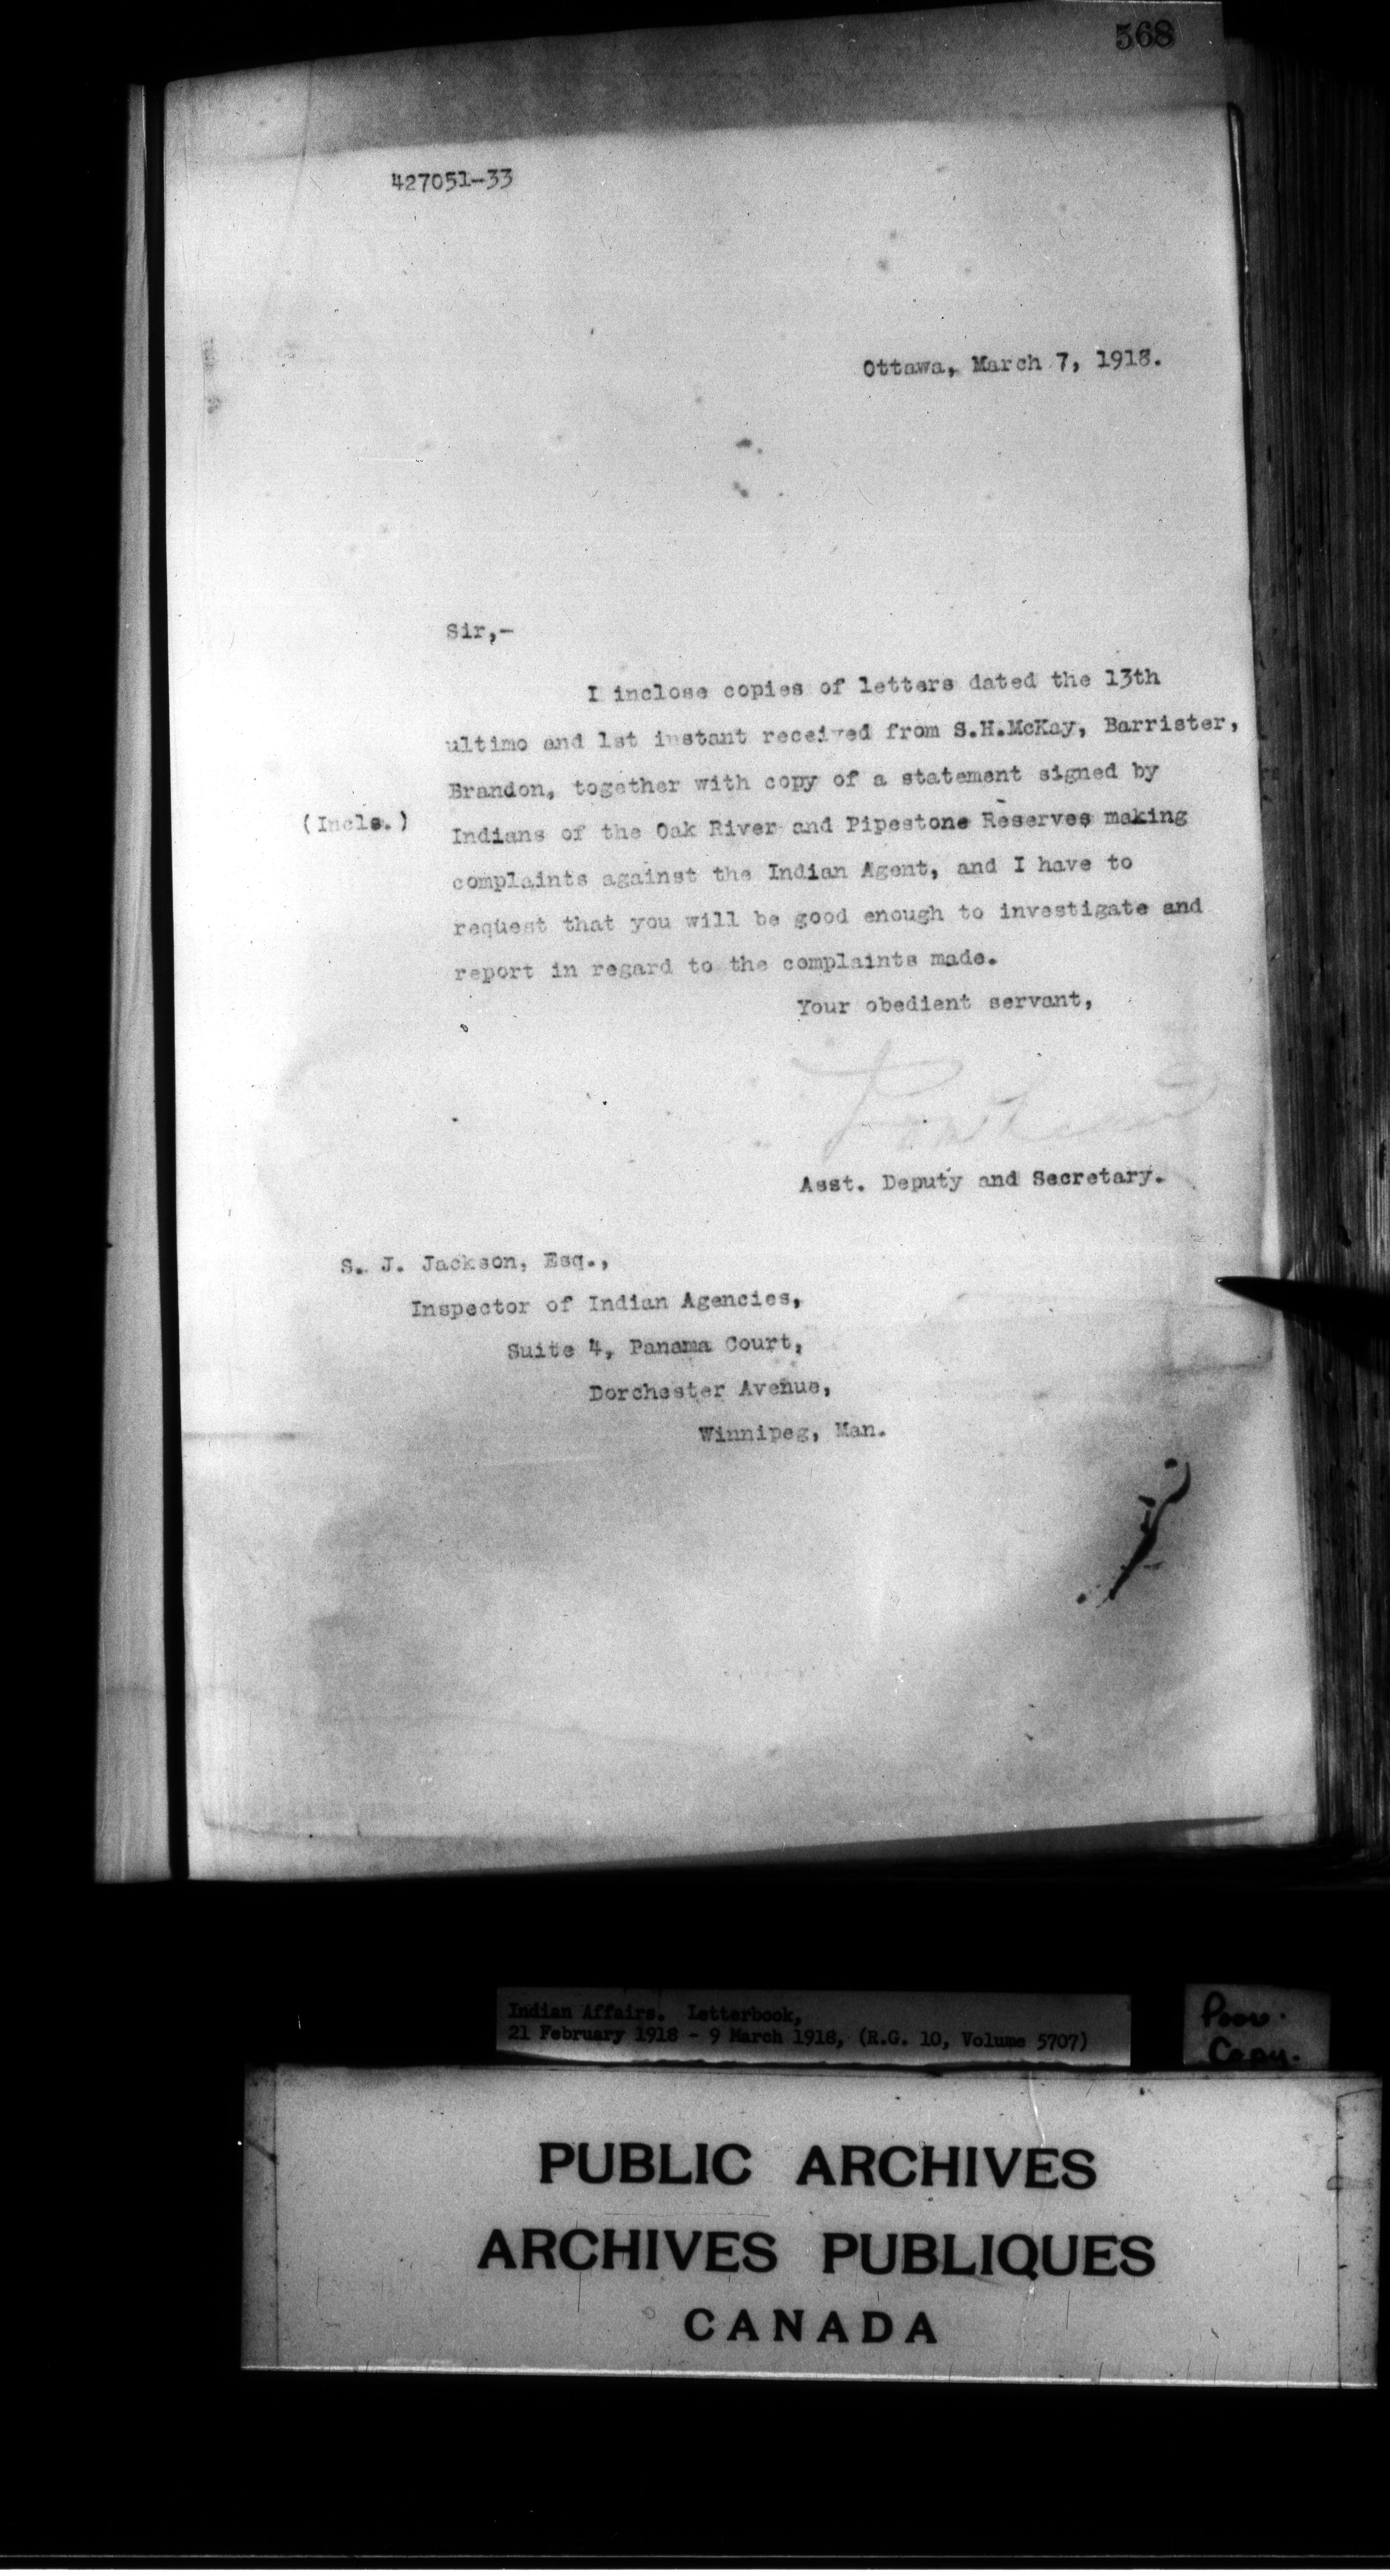 568
427051-33
Ottawa, March 7, 1918.
Sir,-
I inclose copies of letters dated the 13th
ultimo and 1st instant received from S.H.McKay, Barrister,
Brandon, together with copy of a statement signed by
(Incls.) Indians of the Oak River and Pipestone Reserves making
complaints against the Indian Agent, and I have to
request that you will be good enough to investigate and
report in regard to the complaints made.
Your obedient servant,
Asst. Deputy and Secretary.
S. J. Jackson, Esq.,
Inspector of Indian Agencies,
Suite 4, Panama Court,
Dorchester Avenue,
Winnipeg, Man.
Indian Affairs. Letterbook,
21 February 1918 - 9 March 1918, (R.G. 10, Volume 5707)
Poor
Copy.
PUBLIC ARCHIVES
ARCHIVES PUBLIQUES
CANADA